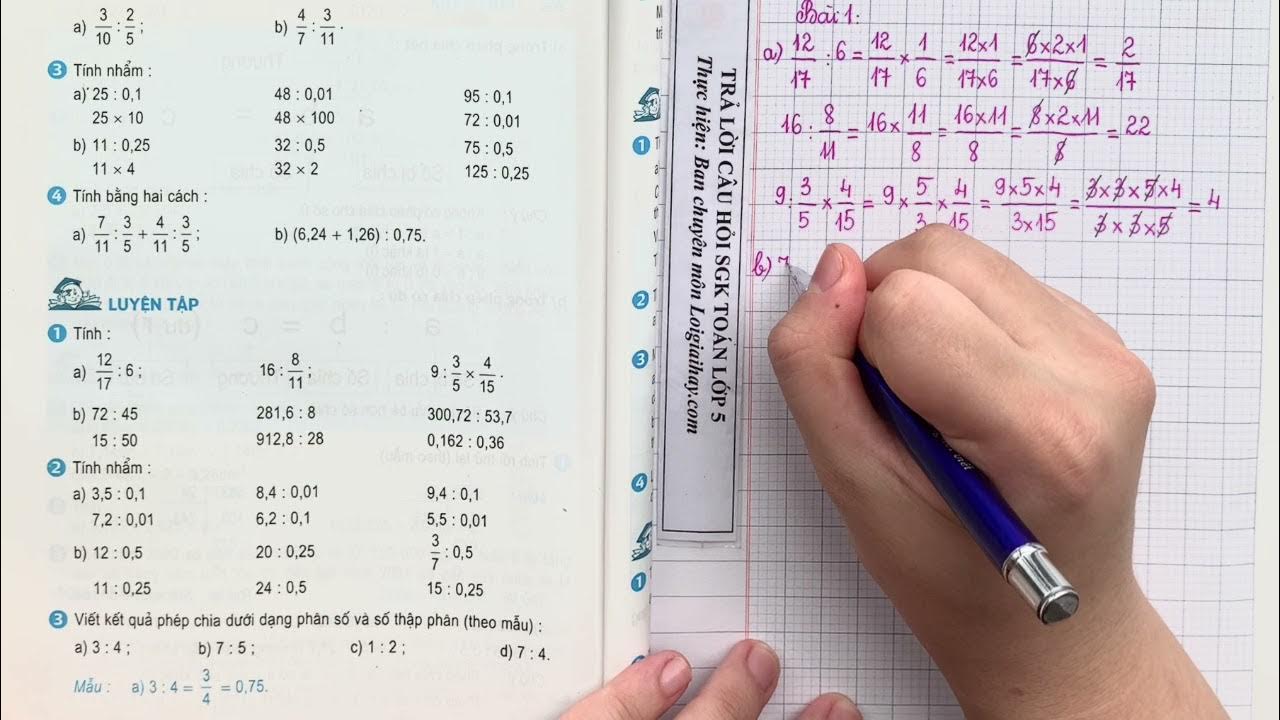 a) 3/10 : 2/5 ; b) 4/7 : 3/11 .
3 Tính nhẩm :
a) 25 : 0,1 48 : 0,01 95 : 0,1
25 × 10 48 × 100 72 : 0,01
b) 11 : 0,25 32 : 0,5 75 : 0,5
11 × 4 32 × 2 125 : 0,25
4 Tính bằng hai cách :
a) 7/11 : 3/5 + 4/11 : 3/5 ; b) (6,24 + 1,26) : 0,75.
LUYỆN TẬP
1 Tính :
a) 12/17 : 6 ; 16 : 8/11 ; 9 : 3/5 × 4/15 .
b) 72 : 45 281,6 : 8 300,72 : 53,7
15 : 50 912,8 : 28 0,162 : 0,36
2 Tính nhẩm :
a) 3,5 : 0,1 8,4 : 0,01 9,4 : 0,1
7,2 : 0,01 6,2 : 0,1 5,5 : 0,01
b) 12 : 0,5 20 : 0,25 3/7 : 0,5
11 : 0,25 24 : 0,5 15 : 0,25
3 Viết kết quả phép chia dưới dạng phân số và số thập phân (theo mẫu) :
a) 3 : 4 ; b) 7 : 5 ; c) 1 : 2 ; d) 7 : 4.
Mẫu : a) 3 : 4 = 3/4 = 0,75.
1
2
3
4
1
TRẢ LỜI CÂU HỎI SGK TOÁN LỚP 5
Thực hiện: Ban chuyên môn Loigiaihay.com
Bài 1:
a) 12/17 : 6 = 12/17 × 1/6 = 12×1/17×6 = 6×2×1/17×6 = 2/17
16 : 8/11 = 16 × 11/8 = 16×11/8 = 8×2×11/8 = 22
9 : 3/5 × 4/15 = 9 × 5/3 × 4/15 = 9×5×4/3×15 = 3×3×5×4/3×3×5 = 4
b) 7